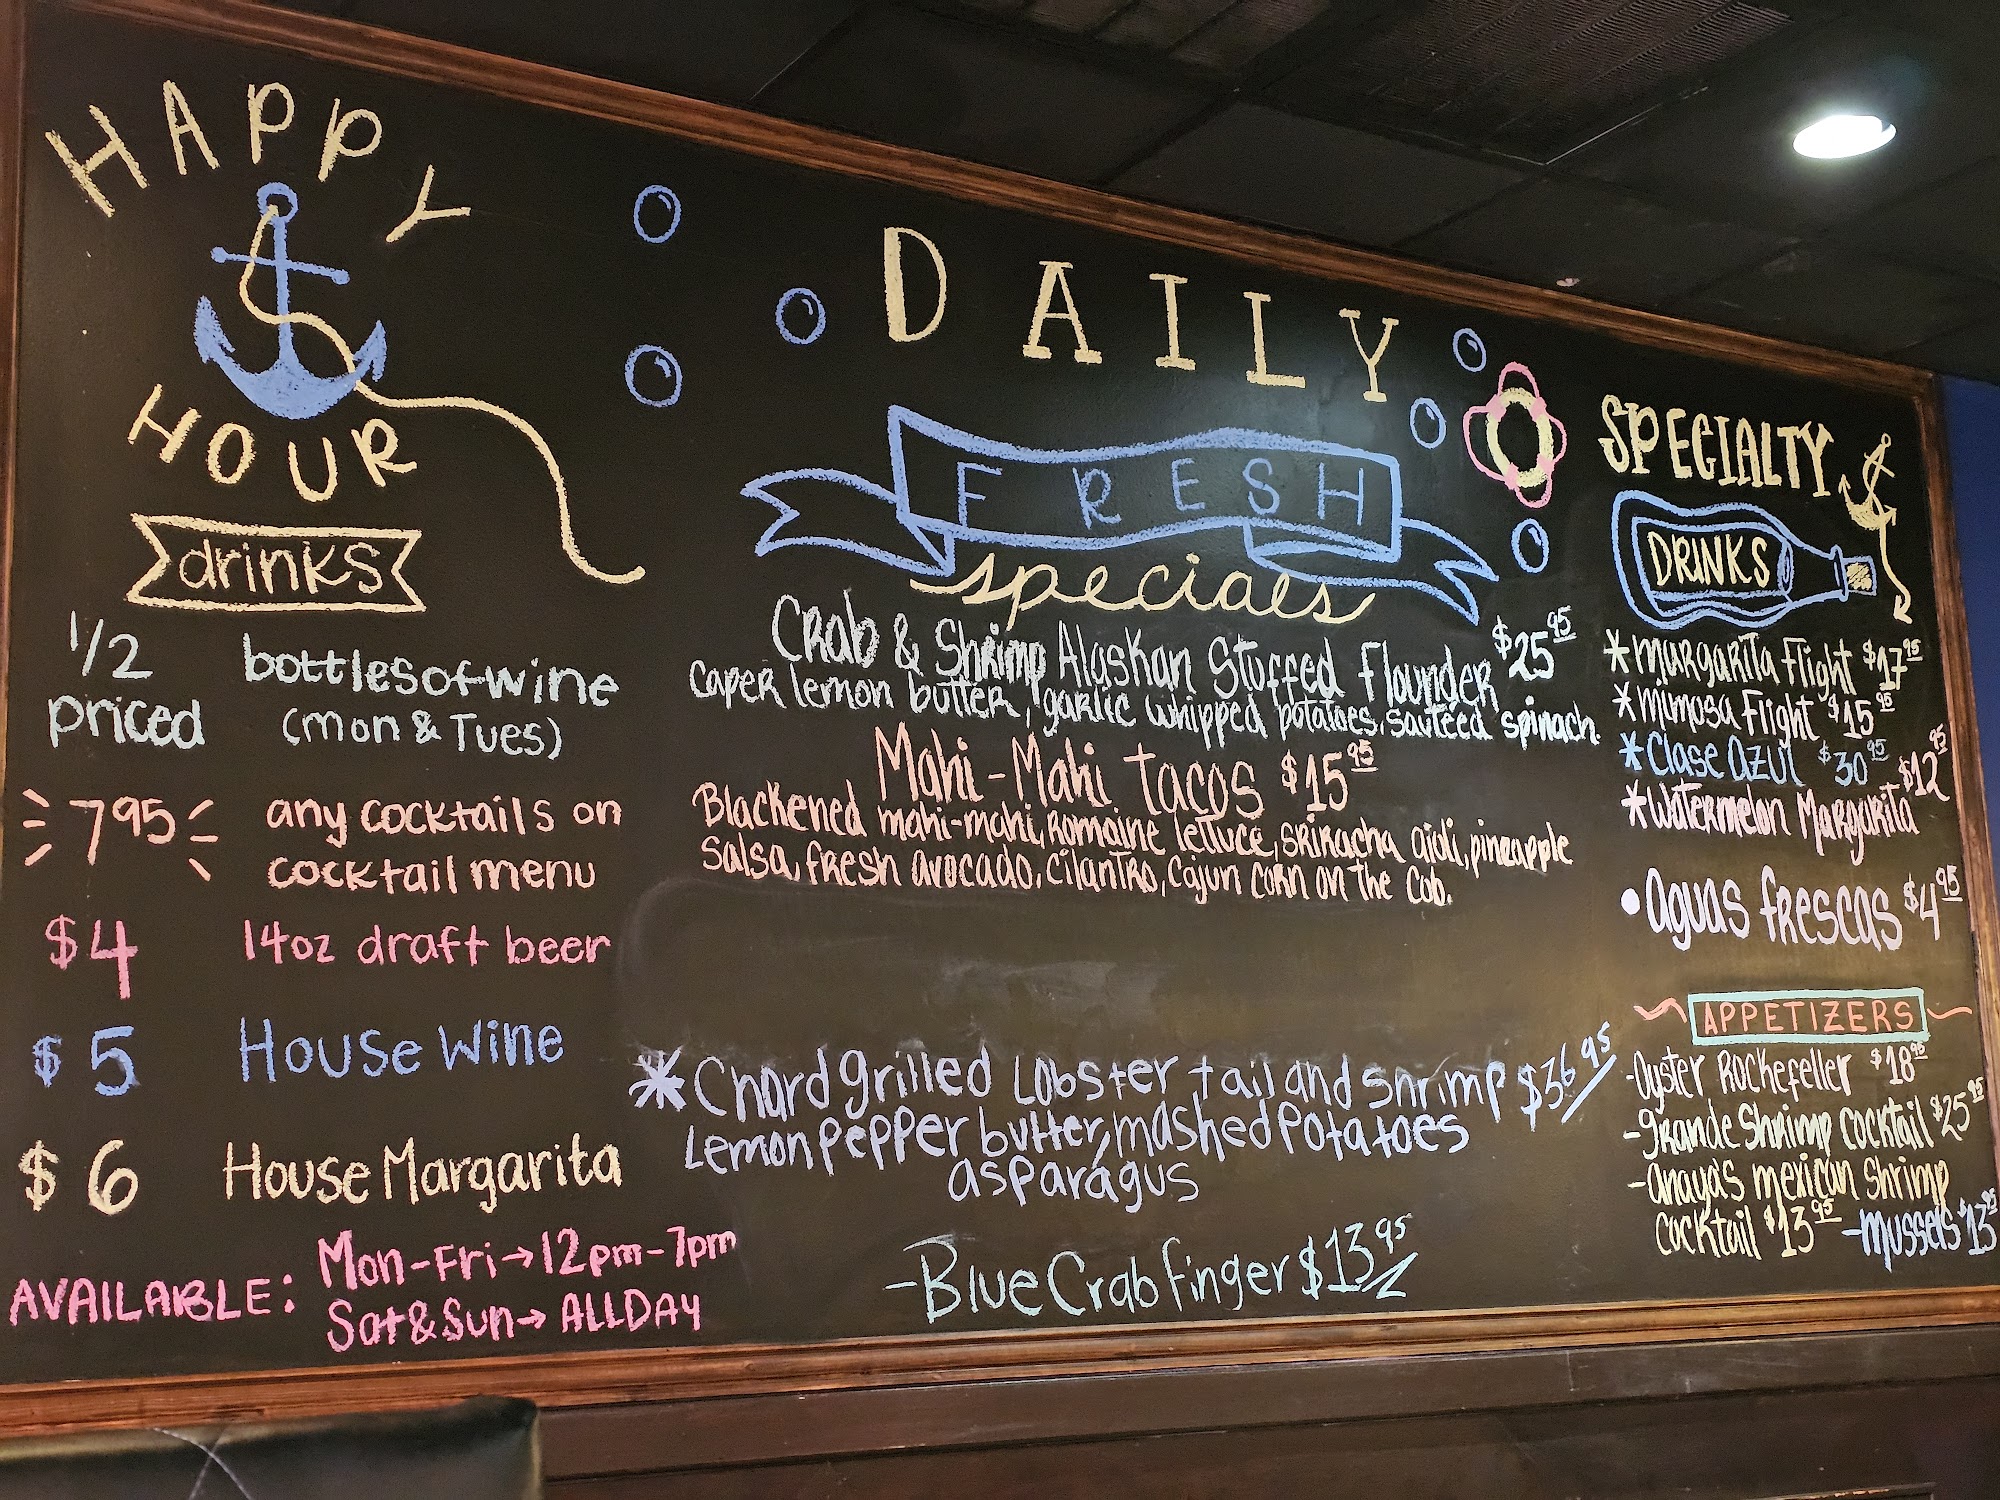 HAPPY
HOUR
drinks
1/2 priced bottles of wine
(Mon & Tues)
795 any cocktails on
cocktail menu
$4 14oz draft beer
$5 House Wine
$6 House Margarita
AVAILABLE: Mon-Fri→12pm-7pm
Sat&Sun→ALL DAY
DAILY
FRESH
specials
Crab & Shrimp Alaskan Stuffed Flounder $25 95
Caper lemon butter, garlic whipped potatoes, sautéed spinach.
Mahi-Mahi tacos $15 95
Blackened mahi-mahi, romaine lettuce, sriracha aioli, pineapple
salsa, fresh avocado, cilantro, cajun corn on the cob.
*Chard grilled Lobster tail and shrimp $36 95
Lemon pepper butter, mashed potatoes
asparagus
-Blue Crab finger $13 95
SPECIALTY
DRINKS
*Margarita Flight $17 95
*Mimosa Flight $15 95
*Clase Azul $30 95
*Watermelon Margarita $12 95
•aguas frescas $4 95
APPETIZERS
-Oyster Rockefeller $18 95
-grande Shrimp cocktail $25 95
-anaya's mexican shrimp
cocktail $13 95 -mussels $13 95